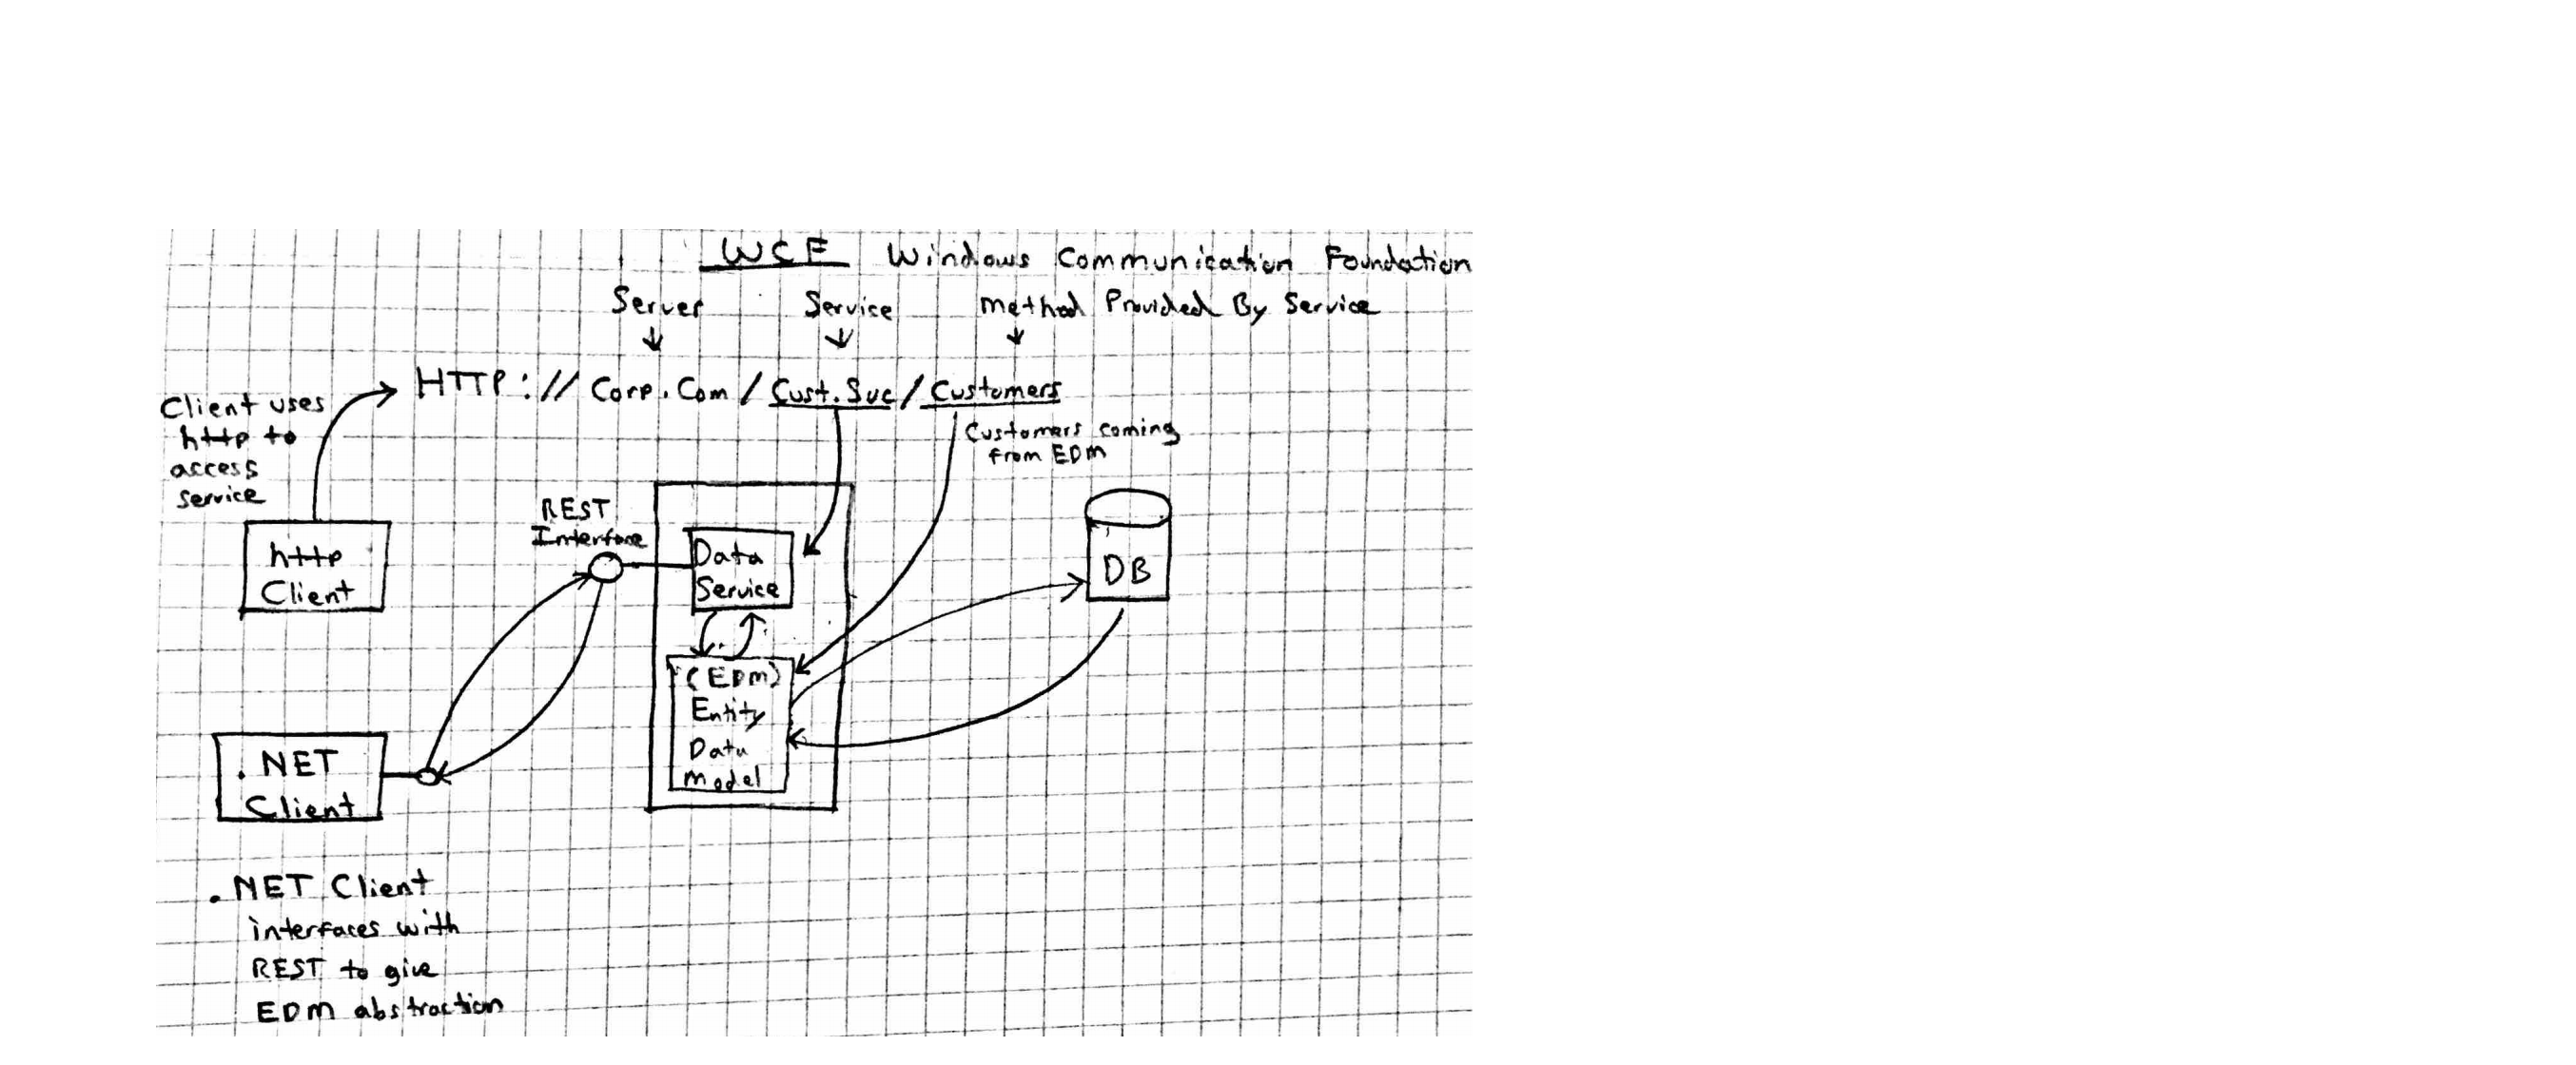 WCF Windows Communication Foundation
Server Service Method Provided By Service
HTTP:// Corp.Com / Cust.Svc / Customers
Client uses
http to
access
service
Customers coming
from EDM
http
Client
REST
Interface
Data
Service
(EDM)
Entity
Data
Model
DB
.NET
Client
.NET Client
interfaces with
REST to give
EDM abstraction